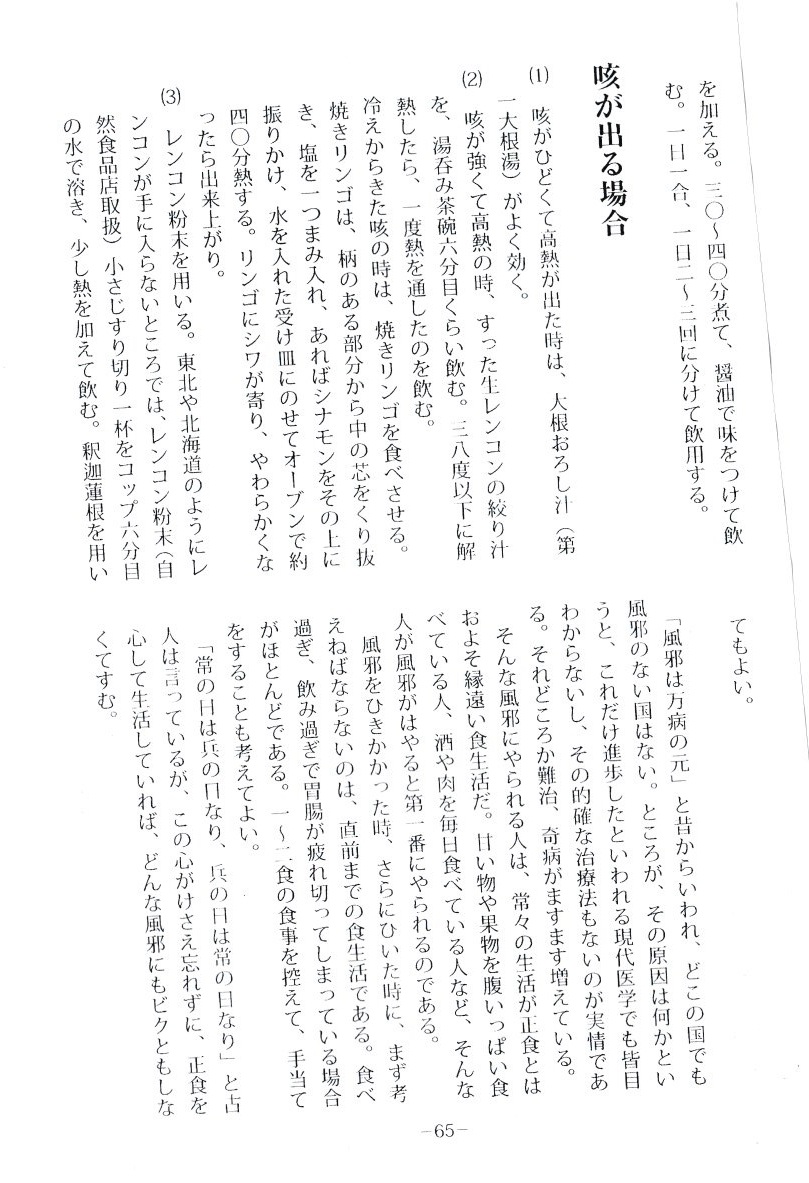 を加える。三〇〜四〇分煮て、醤油で味をつけて飲
む。一日一合、一日二〜三回に分けて飲用する。
咳が出る場合
(1) 咳がひどくて高熱が出た時は、大根おろし汁（第
一大根湯）がよく効く。
(2) 咳が強くて高熱の時、すった生レンコンの絞り汁
を、湯呑み茶碗六分目くらい飲む。三八度以下に解
熱したら、一度熱を通したのを飲む。
冷えからきた咳の時は、焼きリンゴを食べさせる。
焼きリンゴは、柄のある部分から中の芯をくり抜
き、塩を一つまみ入れ、あればシナモンをその上に
振りかけ、水を入れた受け皿にのせてオーブンで約
四〇分熱する。リンゴにシワが寄り、やわらかくな
ったら出来上がり。
(3) レンコン粉末を用いる。東北や北海道のようにレ
ンコンが手に入らないところでは、レンコン粉末（自
然食品店取扱）小さじすり切り一杯をコップ六分目
の水で溶き、少し熱を加えて飲む。釈迦蓮根を用い
てもよい。
「風邪は万病の元」と昔からいわれ、どこの国でも
風邪のない国はない。ところが、その原因は何かとい
うと、これだけ進歩したといわれる現代医学でも皆目
わからないし、その的確な治療法もないのが実情であ
る。それどころか難治、奇病がますます増えている。
そんな風邪にやられる人は、常々の生活が正食とは
およそ縁遠い食生活だ。甘い物や果物を腹いっぱい食
べている人、酒や肉を毎日食べている人など、そんな
人が風邪がはやると第一番にやられるのである。
風邪をひきかかった時、さらにひいた時に、まず考
えねばならないのは、直前までの食生活である。食べ
過ぎ、飲み過ぎで胃腸が疲れ切ってしまっている場合
がほとんどである。一〜二食の食事を控えて、手当て
をすることも考えてよい。
「常の日は兵の日なり、兵の日は常の日なり」と古
人は言っているが、この心がけさえ忘れずに、正食を
心して生活していれば、どんな風邪にもビクともしな
くてすむ。
-65-